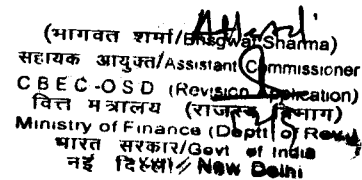 (भागवत शर्मा/Bhagwat Sharma)
सहायक आयुक्त/Assistant Commissioner
CBEC-OSD (Revision Application)
वित्त मंत्रालय (राजस्व विभाग)
Ministry of Finance (Deptt of Rev)
भारत सरकार/Govt of India
नई दिल्ली/New Delhi